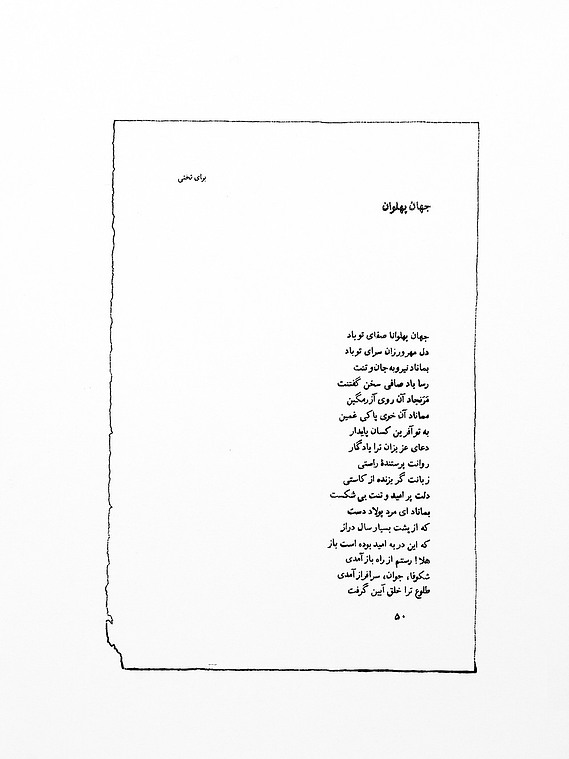 برای تختی
جهان پهلوان
جهان پهلوانا صفای تو باد
دل مهرورزان سرای تو باد
بماناد نیرو به جان و تنت
رسا باد صافی سخن گفتنت
مَرَنجاد آن روی آزرمگین
مماناد آن خوی پاکی غمین
به تو آفرین کسان پایدار
دعای عزیزان ترا یادگار
روانت پرستندهٔ راستی
زبانت گریزنده از کاستی
دلت پر امید و تنت بی شکست
بماناد ای مرد پولاد دست
که از پشت بسیار سال دراز
که این در به امید بوده است باز
هلا! رستم از راه باز آمدی
شکوفا، جوان، سرافراز آمدی
طلوع ترا خلق آیین گرفت
۵۰